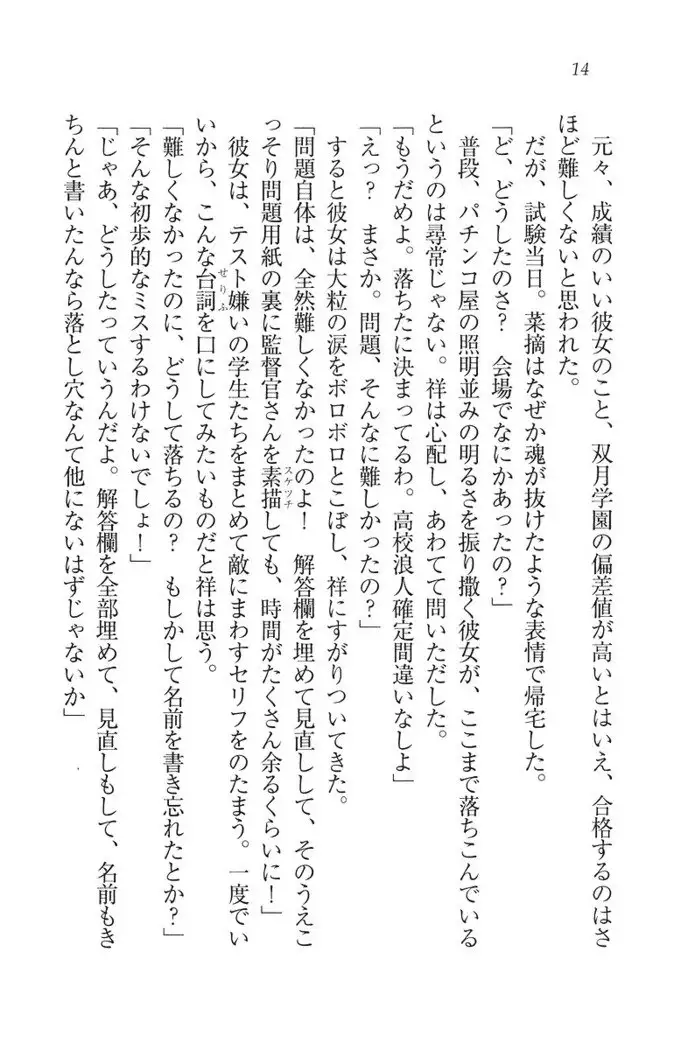 14
元々、成績のいい彼女のこと、双月学園の偏差値が高いとはいえ、合格するのはさ
ほど難しくないと思われた。
だが、試験当日。菜摘はなぜか魂が抜けたような表情で帰宅した。
「ど、どうしたのさ？　会場でなにかあったの？」
普段、パチンコ屋の照明並みの明るさを振り撒く彼女が、ここまで落ちこんでいる
というのは尋常じゃない。祥は心配し、あわてて問いただした。
「もうだめよ。落ちたに決まってるわ。高校浪人確定間違いなしよ」
「えっ？　まさか。問題、そんなに難しかったの？」
すると彼女は大粒の涙をボロボロとこぼし、祥にすがりついてきた。
「問題自体は、全然難しくなかったのよ！　解答欄を埋めて見直しして、そのうえこ
っそり問題用紙の裏に監督官さんを素描スケッチしても、時間がたくさん余るくらいに！」
彼女は、テスト嫌いの学生たちをまとめて敵にまわすセリフをのたまう。一度でい
いから、こんな台詞せりふを口にしてみたいものだと祥は思う。
「難しくなかったのに、どうして落ちるの？　もしかして名前を書き忘れたとか？」
「そんな初歩的なミスするわけないでしょ！」
「じゃあ、どうしたっていうんだよ。解答欄を全部埋めて、見直しもして、名前もき
ちんと書いたんなら落とし穴なんて他にないはずじゃないか」